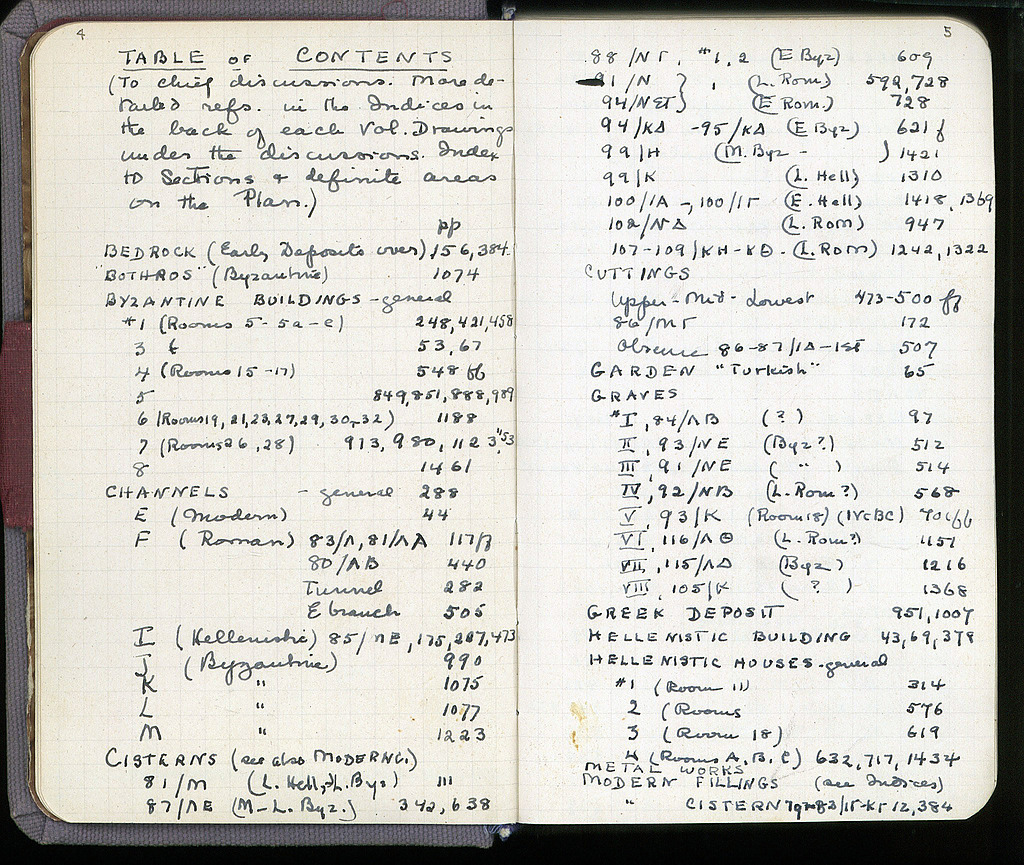 4
TABLE OF CONTENTS
(To chief discussions. More de-
tailed refs. in the Indices in
the back of each Vol. Drawings
under the discussions. Index
to Sections & definite areas
on the Plan.)
pp
BEDROCK (Early Deposits over) 156,384
"BOTHROS" (Byzantine) 1074
BYZANTINE BUILDINGS - general
#1 (Rooms 5-5a-e) 248,421,458
3 53,67
4 (Rooms 15-17) 548 ff
5 849,851,888,989
6 (Rooms 19,21,23,27,29,30,32) 1188
7 (Rooms 26,28) 913,980,1123,
8 1461
CHANNELS - general 288
E (Modern) 44
F (Roman) 83/Λ,81/ΛΑ 117ff
80/ΛΒ 440
Tunnel 282
E branch 505
I (Hellenistic) 85/ΛΕ,175,207,473
J (Byzantine) 990
K " 1075
L " 1077
M " 1223
CISTERNS (see also MODERN C.)
81/M (L. Hell, L. Byz) 111
87/ΛΕ (M-L. Byz.) 342,638
5
88/ΝΓ, #1,2 (E Byz) 609
91/Ν } (L. Rom) 599,728
94/ (E Rom.) 728
94/ΚΔ -95/ΚΔ (E Byz) 621 f
99/Η (M. Byz - ) 1421
99/Κ (L. Hell) 1310
100/ΙΑ -,100/ΙΓ (E. Hell) 1418,1369
102/ΝΔ (L. Rom) 947
107-109/ΚΗ-ΚΘ. (L. Rom) 1242,1322
CUTTINGS
Upper-Mid-Lowest 473-500 ff
86/ΜΓ 172
Obscure 86-87/ΙΔ- 507
GARDEN "Turkish" 65
GRAVES
#I,84/ΛΒ (?) 97
II,93/ΝΕ (Byz?) 512
III,91/ΝΕ ( " ) 514
IV,92/ΝΒ (L. Rom?) 568
V,93/Κ (Room 18) (IVc BC) 701ff
VI,116/ΛΘ (L. Rom?) 1157
VII,115/ΛΔ (Byz) 1216
VIII,105/Κ (?) 1368
GREEK DEPOSIT 951,1007
HELLENISTIC BUILDING 43,69,378
HELLENISTIC HOUSES - general
#1 (Room 11) 314
2 (Rooms 576
3 (Room 18) 619
4 (Rooms A,B,C) 632,717,1434
METAL WORKS
MODERN FILLINGS (see Indices)
" CISTERN 83/ΙΓ-ΚΓ 12,384